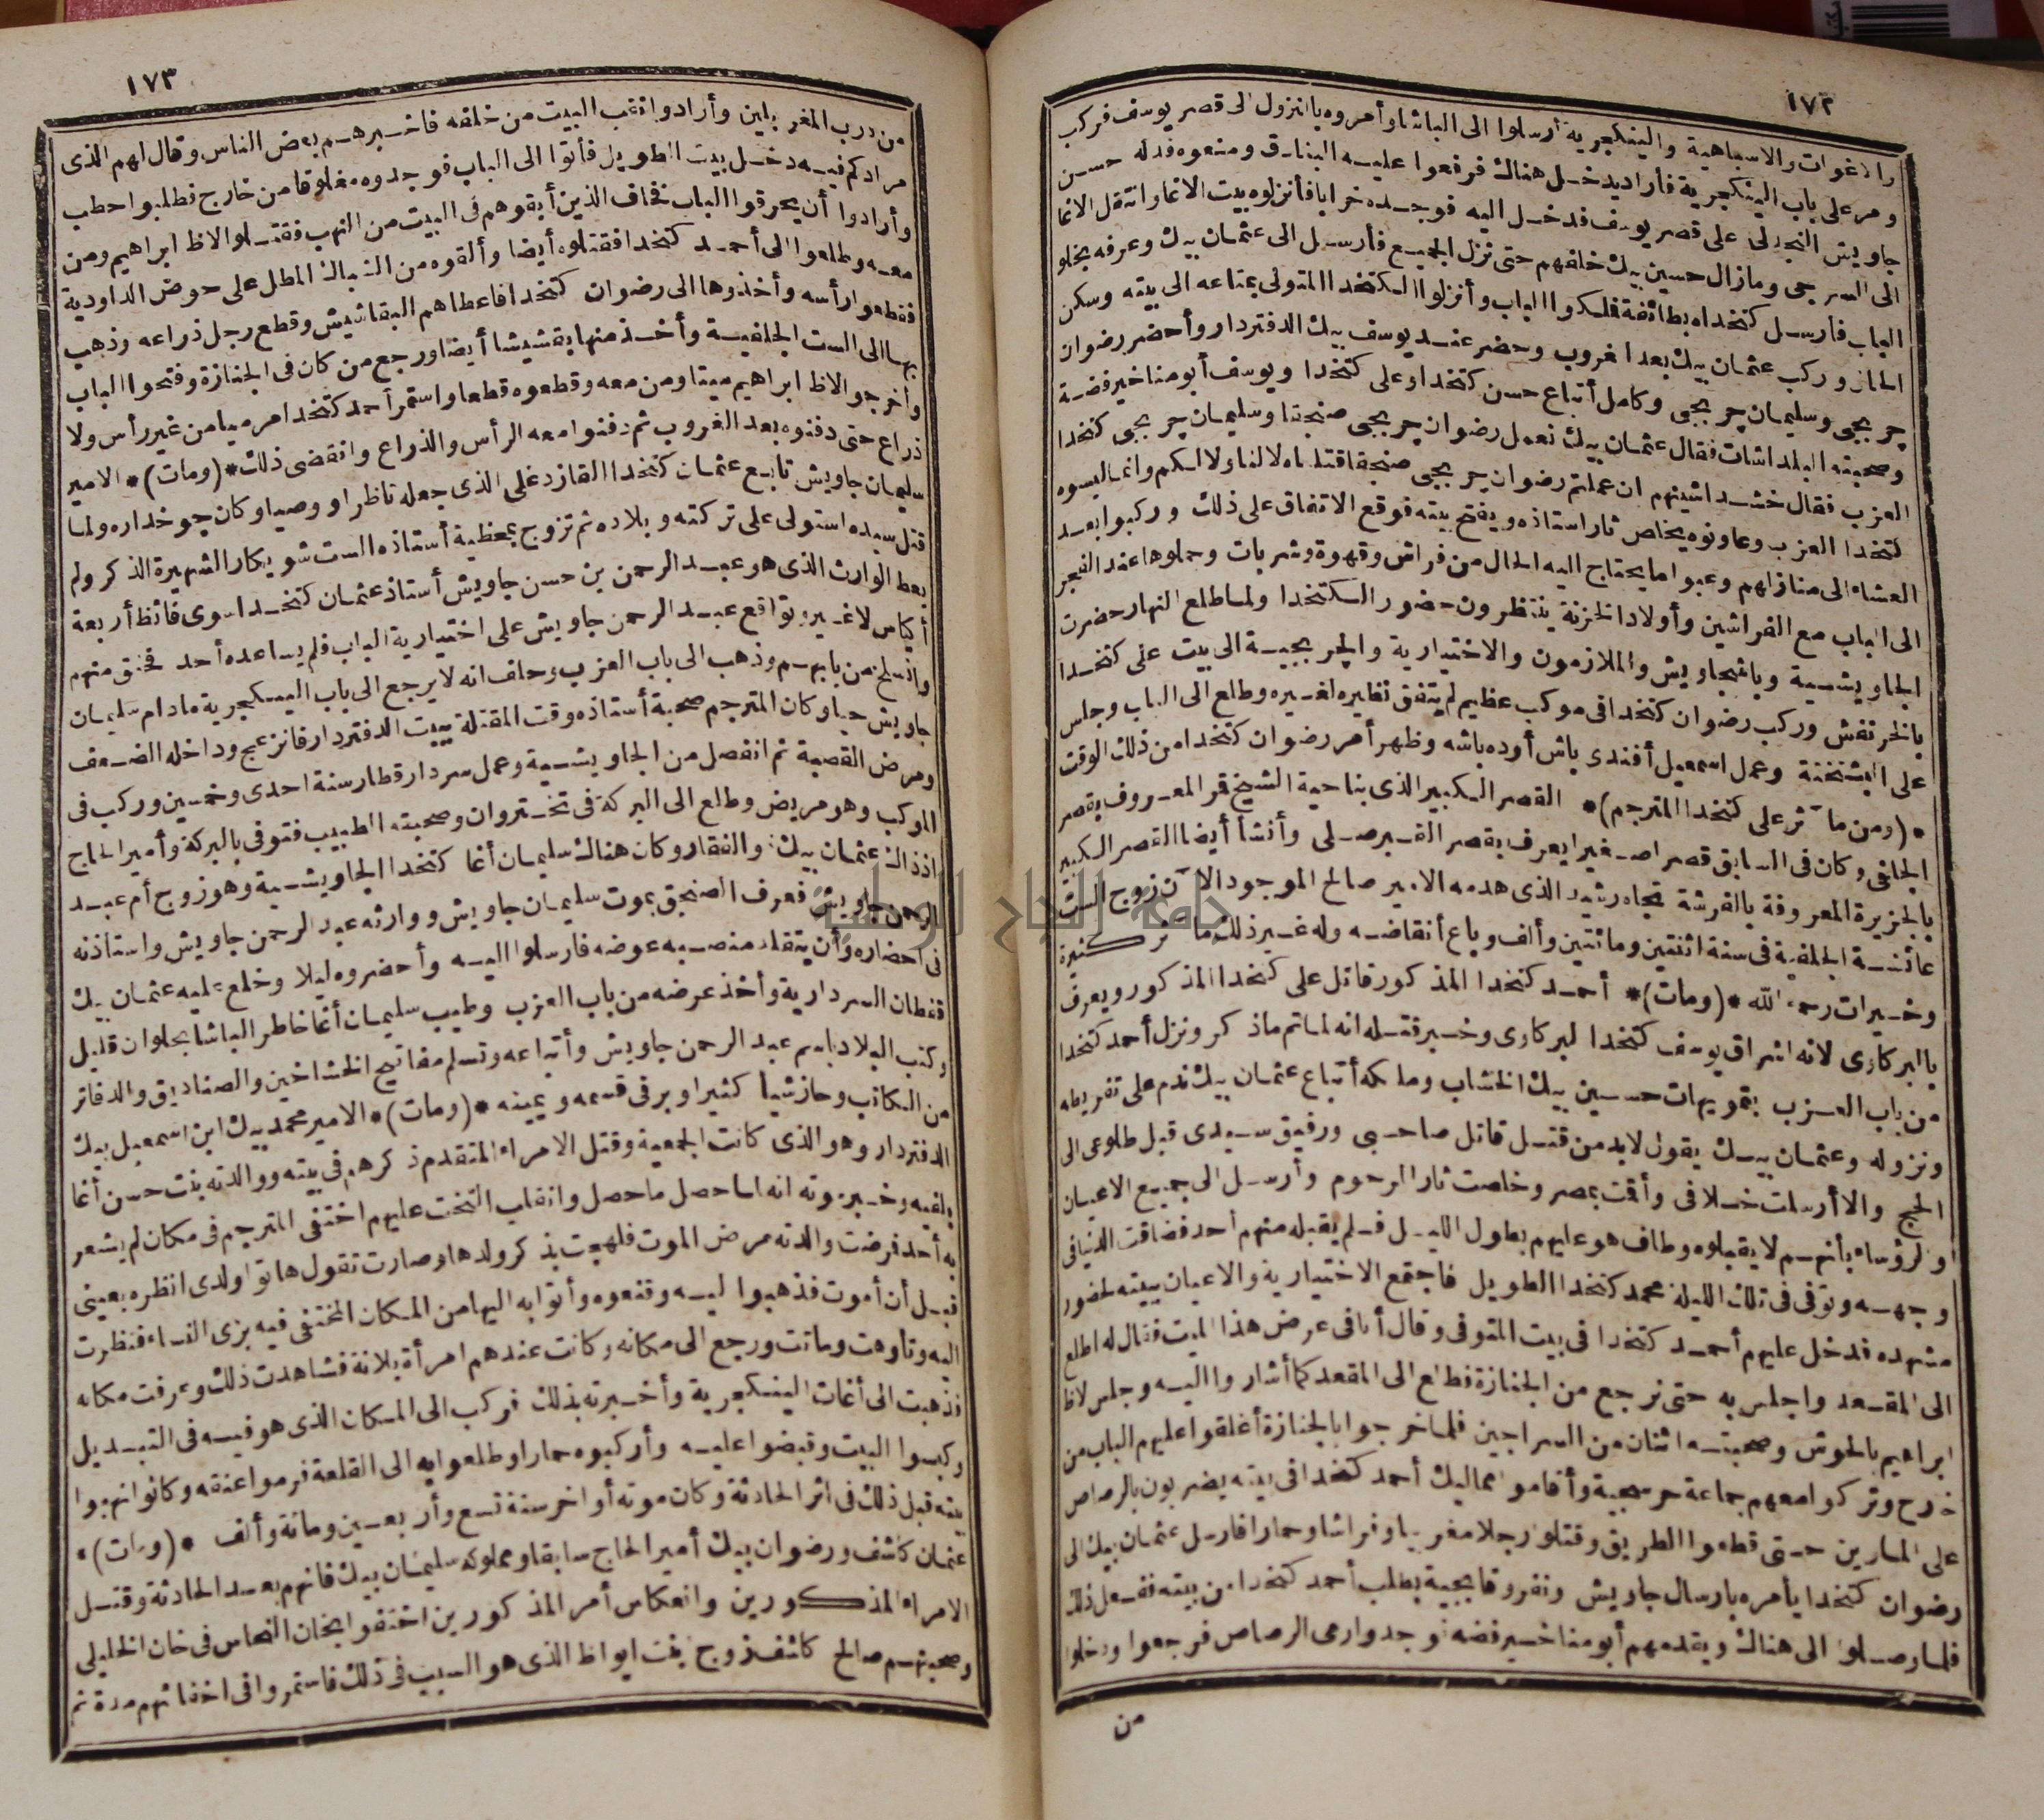 ١٧٢
والاغوات والاسباهية والينكجرية ارسلوا الى الباشا وأمروه بالنزول الى قصر يوسف فركب
ومر على باب الينكجرية فأراد يدخل هناك فرفعوا عليه البنادق ومنعوه فدله حسن
جاويش النجدلى على قصر يوسف فدخل اليه فوجده خرابا فأنزلوه بيت الاغا وانتقل الاغا
الى السرجى ومازال حسين بيك خلفهم حتى نزل الجميع فأرسل الى عثمان بيك وعرفه يخلو
الباب فأرسل كتخداه بطائفة فملكوا الباب وأنزلوا الكتخدا المتولى بمتاعه الى بيته وسكن
الحال وركب عثمان بيك بعد الغروب وحضر عند يوسف بيك الدفتردار وأحضر رضوان
جربجى وسليمان جربجى وكامل أتباع حسن كتخدا وعلى كتخدا ويوسف أبو مناخير فضة
وصحبته البلداشات فقال عثمان بيك نعمل رضوان جربجى صنجقا وسليمان جربجى كتخدا
العزب فقال خشداشينهم ان عملتم رضوان جربجى صنجقا قتلناه لا لنا ولا لكم وانما البسوه
كتخدا العزب وعاونوه يخلص ثار استاذه ويفتح بيته فوقع الاتفاق على ذلك وركبوا بعد
العشاء الى منازلهم وعبوا ما يحتاج اليه الحال من فراش وقهوة وشربات وحملوها عند الفجر
الى الباب مع الفراشين وأولاد الخزنة ينتظرون حضور الكتخدا ولما طلع النهار حضرت
الجاويشية وباشجاويش والملازمون والاختيارية والجربجية الى بيت على كتخدا
بالخرنفش وركب رضوان كتخدا فى موكب عظيم لم يتفق نظيره لغيره وطلع الى الباب وجلس
على البشتخنة وعمل اسمعيل أفندى باش أوده باشه وظهر أمر رضوان كتخدا من ذلك الوقت
*(ومن مآثر على كتخدا المترجم)* القصر الكبير الذى بناحية الشيخ قمر المعروف بقصر
الجلفى وكان فى السابق قصرا صغيرا يعرف بقصر القبرصلى وأنشأ أيضا القصر الكبير
بالجزيرة المعروفة بالفرشة تجاه رشيد الذى هدمه الامير صالح الموجود الآن زوج الست
عائشة الجلفية فى سنة اثنتين ومائتين وألف وباع أنقاضه وله غير ذلك مآثر كثيرة
وخيرات رحمه الله *(ومات)* أحمد كتخدا المذكور قاتل على كتخدا المذكور ويعرف
بالبركاوى لانه اشراق يوسف كتخدا البركاوى وخبر قتله انه لما تم ماذكر ونزل أحمد كتخدا
من باب العزب بتمويهات حسين بيك الخشاب وملكه أتباع عثمان بيك ندم على تفريطه
ونزوله وعثمان بيك يقول لابد من قتل قاتل صاحبى ورفيق سيدى قبل طلوعى الى
الحج والا أرسلت خلافى وأقمت بمصر وخلصت ثار المرحوم وأرسل الى جميع الاعيان
والرؤساء بأنهم لا يقبلوه وطاف هو عليهم بطول الليل فلم يقبله منهم أحد فضاقت الدنيا فى
وجهه وتوفى فى تلك الليلة محمد كتخدا الطويل فاجتمع الاختيارية والاعيان ببيته لحضور
مشهده فدخل عليهم أحمد كتخدا فى بيت المتوفى وقال أنا فى عرض هذا الميت فقال له اطلع
الى المقعد واجلس به حتى نرجع من الجنازة فطلع الى المقعد كما أشاروا اليه وجلس لاظ
ابراهيم بالحوش وصحبته اثنان من السراجين فلما خرجوا بالجنازة أغلقوا عليهم الباب من
خارج وتركوا معهم جماعة حرسجية وأقاموا مماليك أحمد كتخدا فى بيته يضربون بالرصاص
على المارين حتى قطعوا الطريق وقتلوا رجلا مغربيا وفراشا وحمارا فارسل عثمان بيك الى
رضوان كتخدا يأمره بارسال جاويش ونفر وقابجية بطلب أحمد كتخدا من بيته ففعل ذلك
فلما وصلوا الى هناك ويقدمهم أبو مناخير فضة وجدوا رمى الرصاص فرجعوا ودخلوا
من
١٧٣
من درب المغربلين وأرادوا نقب البيت من خلفه فاخبرهم بعض الناس وقال لهم الذى
مرادكم فيه دخل بيت الطويل فأتوا الى الباب فوجدوه مغلوقا من خارج فطلبوا حطبا
وأرادوا أن يحرقوا الباب فخاف الذين أبقوهم فى البيت من النهب فقتلوا لاظ ابراهيم ومن
معه وطلعوا الى أحمد كتخدا فقتلوه أيضا وألقوه من الشباك المطل على حوض الداودية
فقطعوا رأسه وأخذوها الى رضوان كتخدا فاعطاهم البقاشيش وقطع رجل ذراعه وذهب
بها الى الست الجلفية وأخذ منها بقشيشا أيضا ورجع من كان فى الجنازة وفتحوا الباب
وأخرجوا لاظ ابراهيم ميتا ومن معه وقطعوه قطعا واستمر أحمد كتخدا مرميا من غير رأس ولا
ذراع حتى دفنوه بعد الغروب ثم دفنوا معه الرأس والذراع وانقضى ذلك *(ومات)* الامير
سليمان جاويش تابع عثمان كتخدا القازدغلى الذى جعله ناظرا ووصيا وكان جوخداره ولما
قتل سيده استولى على تركته وبلاده ثم تزوج بمحظية أستاذه الست شويكار الشهيرة الذكر ولم
يعط الوارث الذى هو عبد الرحمن بن حسن جاويش أستاذ عثمان كتخدا سوى فائظ أربعة
أكياس لاغير وتواقع عبد الرحمن جاويش على اختيارية الباب فلم يساعده أحد فحنق منهم
وانسلخ من بابهم وذهب الى باب العزب وحلف انه لا يرجع الى باب الينكجرية مادام سليمان
جاويش حيا وكان المترجم صحبة أستاذه وقت المقتلة ببيت الدفتردار فانزعج وداخله الضعف
ومرض القصبة ثم انفصل من الجاويشية وعمل سردار قطار سنة احدى وخمسين وركب فى
الموكب وهو مريض وطلع الى البركة فى تختروان وصحبته الطبيب فتوفى بالبركة وأمير الحاج
اذ ذاك عثمان بيك ذو الفقار وكان هناك سليمان أغا كتخدا الجاويشية وهو زوج أم عبد
الرحمن جاويش فعرف الصنجق بموت سليمان جاويش ووارثه عبد الرحمن جاويش واستاذنه
فى احضاره وأن يتقلد منصبه عوضه فارسلوا اليه وأحضروه ليلا وخلع عليه عثمان بيك
قفطان السردارية وأخذ عرضه من باب العزب وطيب سليمان أغا خاطر الباشا بحلوان قليل
وكتب البلاد باسم عبد الرحمن جاويش وأتباعه وتسلم مفاتيح الخشاخين والصناديق والدفاتر
من الكاتب وحاز شيأ كثيرا وبر فى قسمه ويمينه *(ومات)* الامير محمد بيك ابن اسمعيل بيك
الدفتردار وهو الذى كانت الجمعية وقتل الامراء المتقدم ذكرهم فى بيته ووالدته بنت حسن أغا
بلفيه وخبر موته انه لما حصل ما حصل وانقلب التخت عليهم اختفى المترجم فى مكان لم يشعر
به أحد فمرضت والدته مرض الموت فلهجت بذكر ولدها وصارت تقول هاتوا ولدى انظره بعينى
قبل أن أموت فذهبوا اليه وقنعوه وأتوا به اليها من المكان المختفى فيه بزى النساء فنظرت
اليه وتأوهت وماتت ورجع الى مكانه وكانت عندهم امرأة بلانة فشاهدت ذلك وعرفت مكانه
فذهبت الى أغات الينكجرية وأخبرته بذلك فركب الى المكان الذى هو فيه فى التبديل
وكبسوا البيت وقبضوا عليه وأركبوه حمارا وطلعوا به الى القلعة فرموا عنقه وكانوا نهبوا
بيته قبل ذلك فى اثر الحادثة وكان موته أواخر سنة تسع وأربعين ومائة وألف *(ومات)*
عثمان كاشف ورضوان بيك أمير الحاج سابقا ومملوكه سليمان بيك فانهم بعد الحادثة وقتل
الامراء المذكورين وانعكاس أمر المذكورين اختفوا بخان النحاس فى خان الخليلى
وصحبتهم صالح كاشف زوج بنت ايواظ الذى هو السبب فى ذلك فاستمروا فى اخفائهم مدة ثم
جامعة النجاح الوطنية